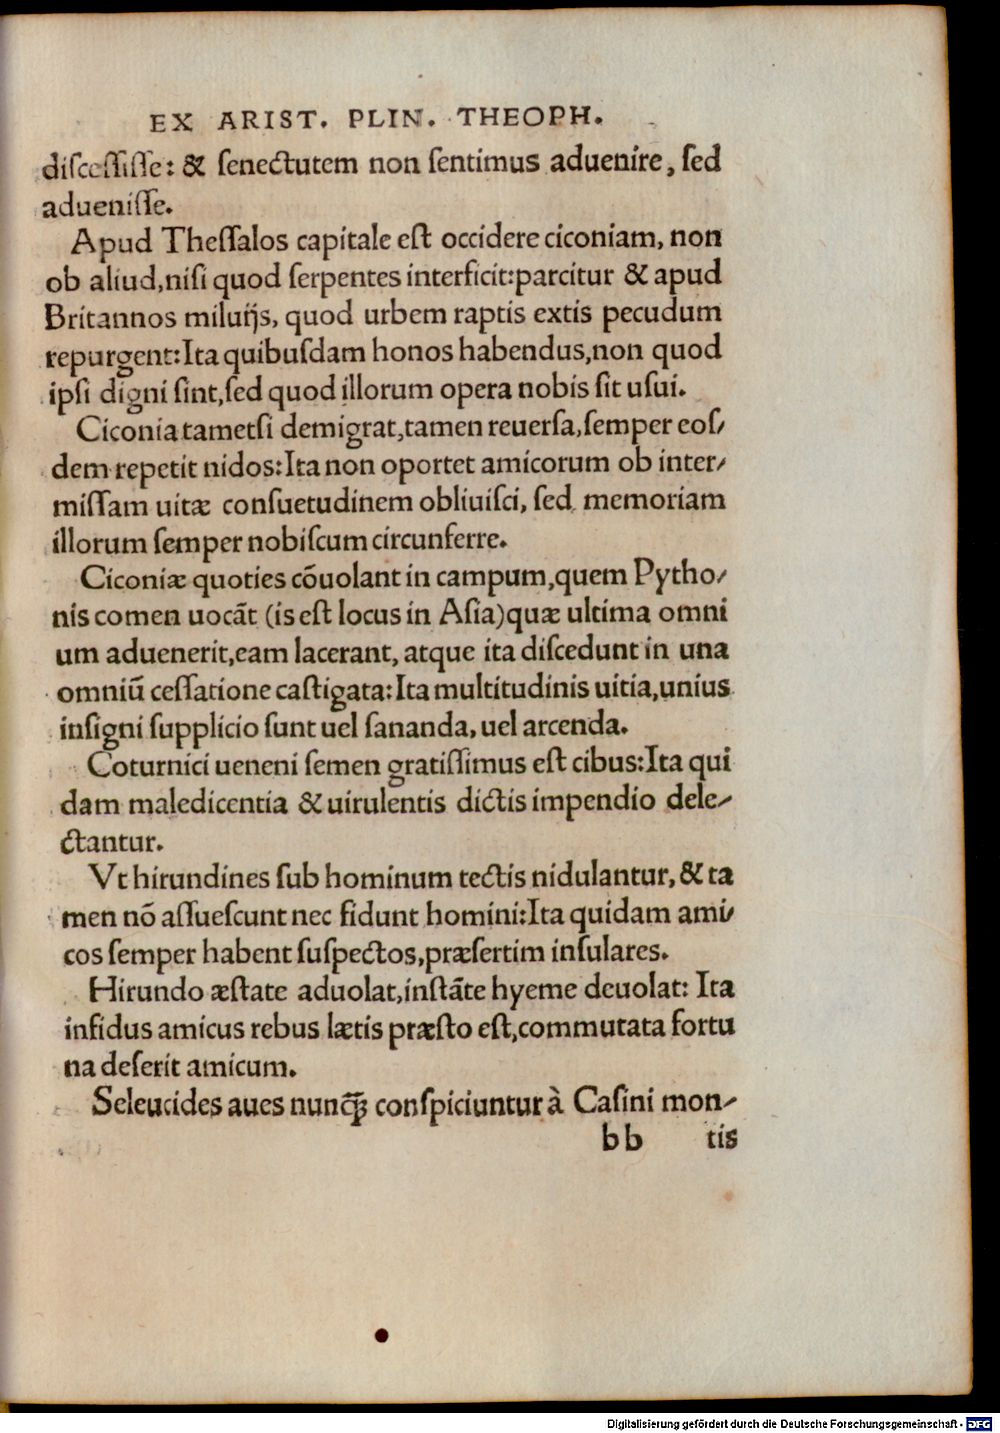 EX ARIST. PLIN. THEOPH.
diſceſſiſſe: & ſenectutem non ſentimus aduenire, ſed
adueniſſe.
Apud Theſſalos capitale eſt occidere ciconiam, non
ob aliud, niſi quod ſerpentes interficit: parcitur & apud
Britannos miluijs, quod urbem raptis extis pecudum
repurgent: Ita quibuſdam honos habendus, non quod
ipſi digni ſint, ſed quod illorum opera nobis ſit uſui.
Ciconia tametſi demigrat, tamen reuerſa, ſemper eoſ/
dem repetit nidos: Ita non oportet amicorum ob inter/
miſſam uitæ conſuetudinem obliuiſci, ſed memoriam
illorum ſemper nobiſcum circunferre.
Ciconiæ quoties cōuolant in campum, quem Pytho/
nis comen uocāt (is eſt locus in Aſia) quæ ultima omni
um aduenerit, eam lacerant, atque ita diſcedunt in una
omniū ceſſatione caſtigata: Ita multitudinis uitia, unius
inſigni ſupplicio ſunt uel ſananda, uel arcenda.
Coturnici ueneni ſemen gratiſſimus eſt cibus: Ita qui
dam maledicentia & uirulentis dictis impendio dele/
ctantur.
Vt hirundines ſub hominum tectis nidulantur, & ta
men nō aſſueſcunt nec fidunt homini: Ita quidam ami/
cos ſemper habent ſuſpectos, præſertim inſulares.
Hirundo æſtate aduolat, inſtāte hyeme deuolat: Ita
infidus amicus rebus lætis præſto eſt, commutata fortu
na deſerit amicum.
Seleucides aues nunꝗ̃ conſpiciuntur à Caſini mon/
bb tis
Digitalisierung gefördert durch die Deutsche Forschungsgemeinschaft - DFG